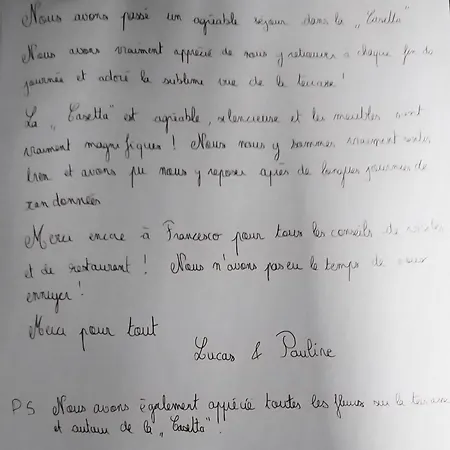 Nous avons passé un agréable séjour dans la „Casetta"
Nous avons vraiment apprécié de nous y retrouver à chaque fin de
journée et adoré la sublime vue de la terrasse !
La „Casetta" est agréable, silencieuse et les meubles sont
vraiment magnifiques ! Nous nous y sommes vraiment sentis
bien et avons pu nous y reposer après de longues journées de
randonnées
Merci encore à Francesco pour tous les conseils de
et de restaurant ! Nous n'avons pas eu le temps de nous
ennuyer !
Merci pour tout
Lucas & Pauline
PS Nous avons également apprécié toutes les fleurs sur la terrasse
et autour de la „Casetta".